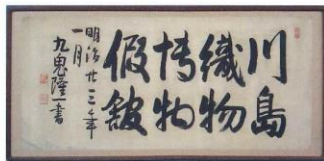 川島
織物
博物
假館
明治廿三年
一月
九鬼隆一書